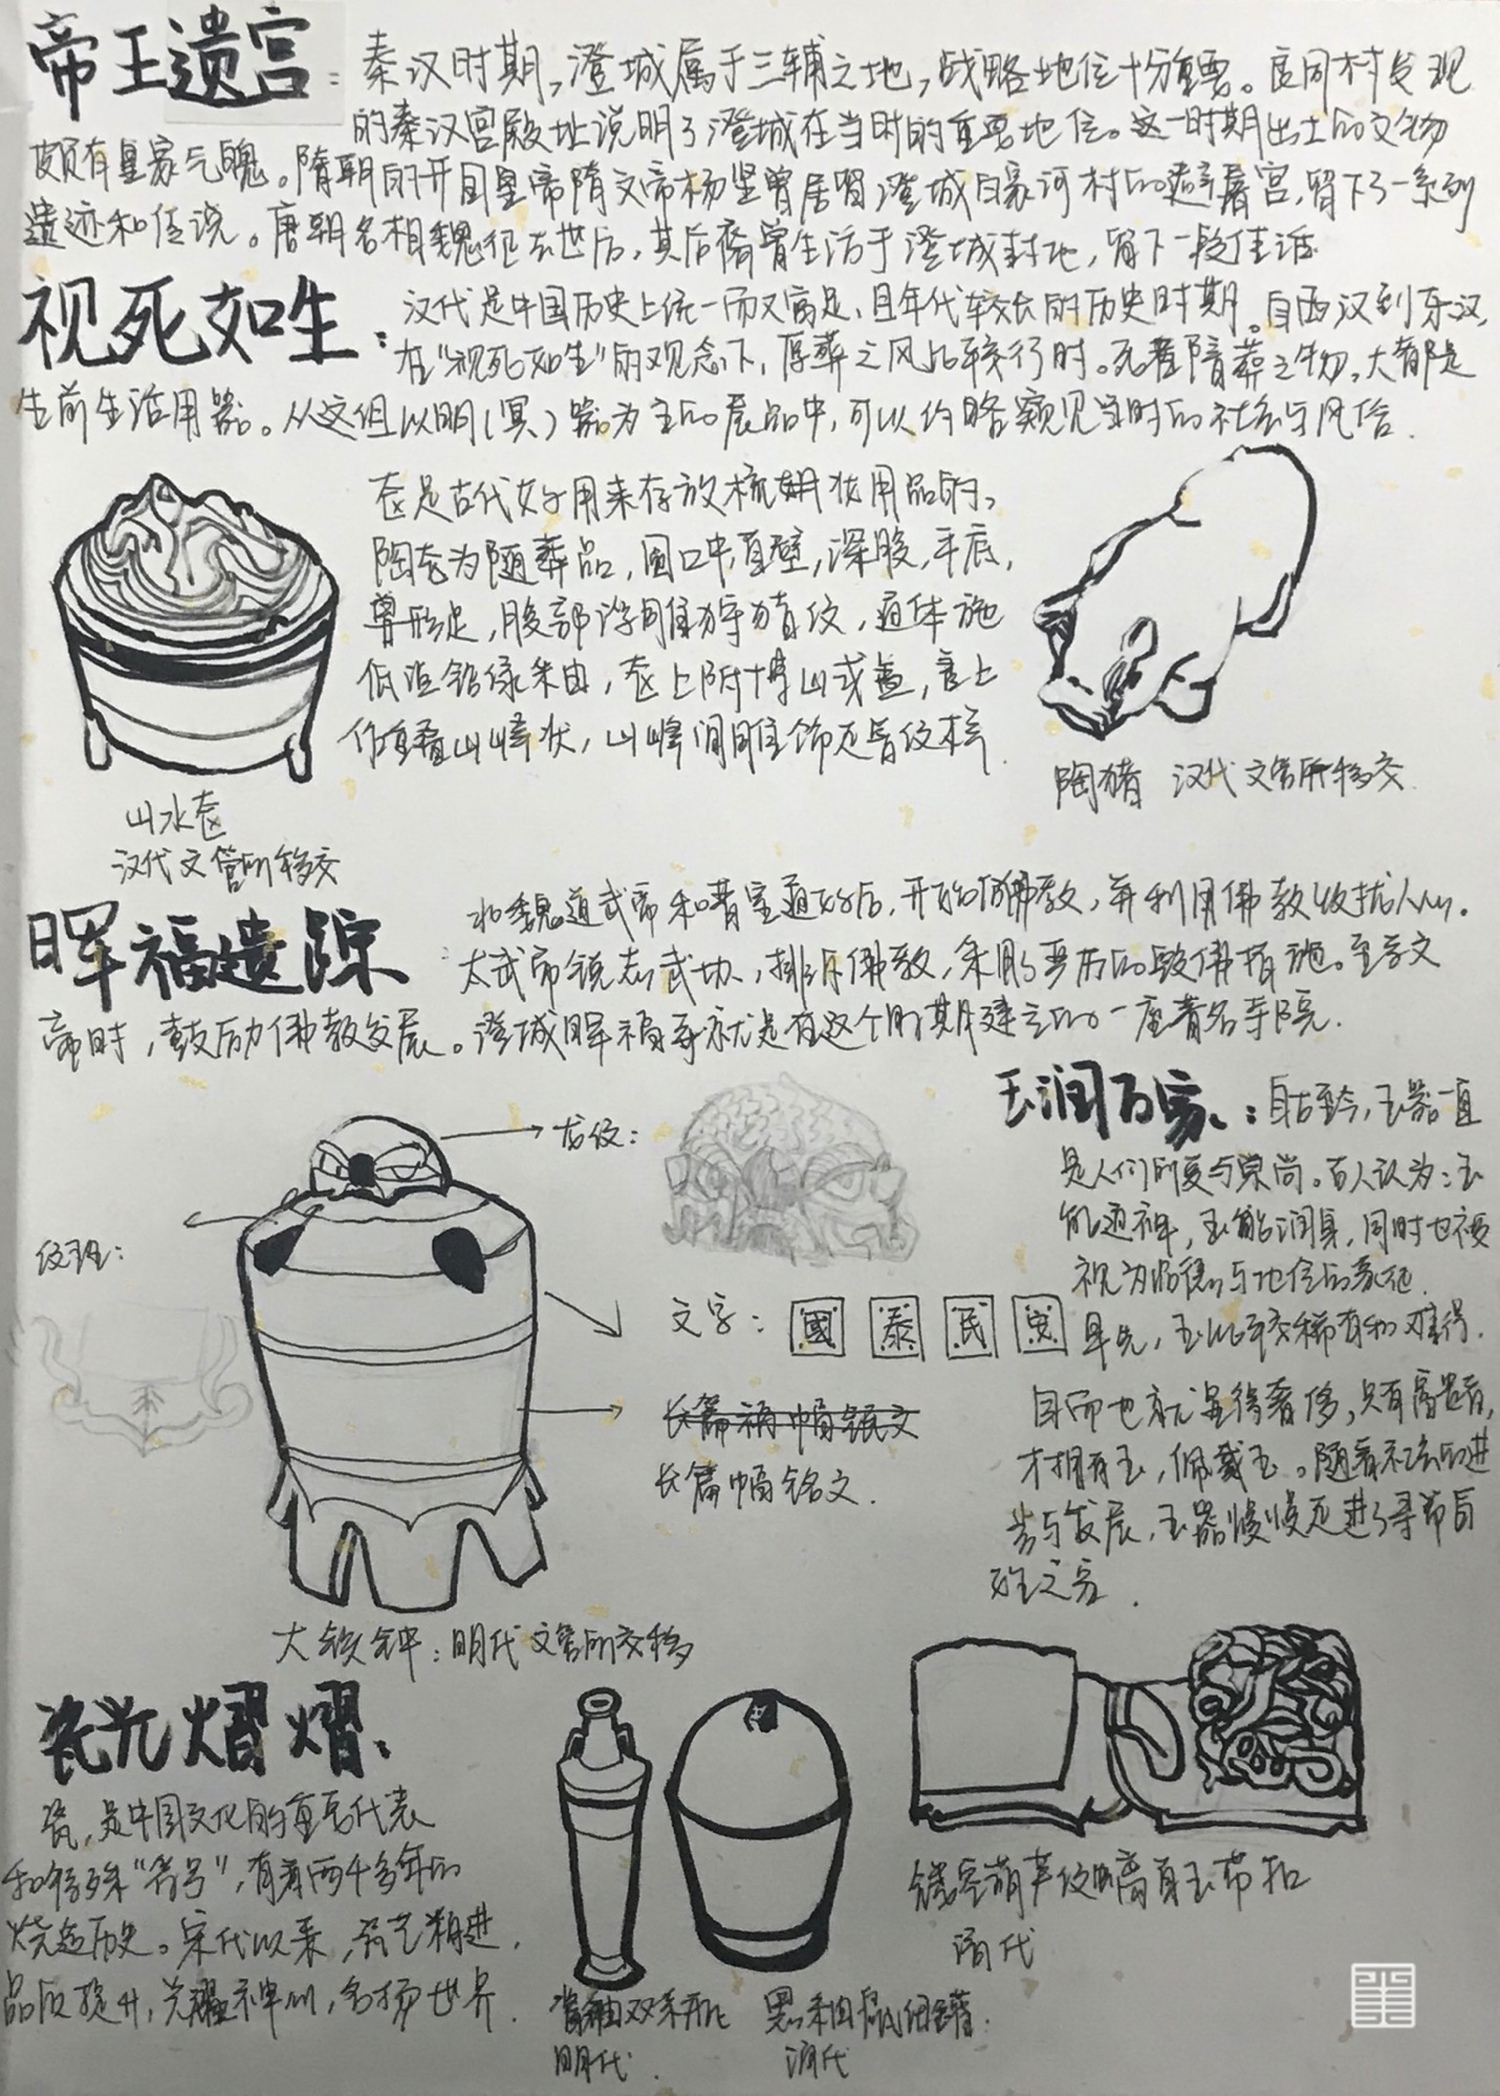 帝王遗宫：秦汉时期，澄城属于三辅之地，战略地位十分重要。良周村发现
的秦汉宫殿址说明了澄城在当时的重要地位。这一时期出土的文物
颇有皇家气魄。隋朝的开国皇帝隋文帝杨坚曾居留澄城白家河村的避暑宫，留下了一系列
遗迹和传说。唐朝名相魏征去世后，其后裔曾生活于澄城封地，留下一段佳话
视死如生：汉代是中国历史上统一而又富足，且年代较长的历史时期。自西汉到东汉，
在"视死如生"的观念下，厚葬之风比较行时。死者陪葬之物，大都是
生前生活用器。从这组以明（冥）器为主的展品中，可以约略窥见当时的社会与风俗.
奁是古代女子用来存放梳妆用品的，
陶奁为随葬品，圆口中直壁，深腹，平底，
兽形足，腹部浮雕狩猎纹，通体施
低温铅绿釉，奁上附博山式盖，盖上
作重叠山峰状，山峰间雕饰
山水奁
汉代文管所移交
陶猪 汉代文管所移交.
晖福遗踪：北魏道武帝和晋室通好后，开始信佛教，并利用佛教收拢人心.
太武帝锐志武功，排斥佛教，采取了严厉的毁佛措施。至孝文
帝时，鼓励佛教发展。澄城晖福寺就是在这个时期建立的一座著名寺院.
龙纹：
玉润万家、：自古至今，玉器一直
是人们的爱与崇尚。古人认为：玉
能通神，玉能润身，同时也被
视为德与地位的象征.
纹理：
文字：國 泰 民 安
早先，玉比较稀有和难得.
因而也就显得奢侈，只有富贵者，
才拥有玉，佩戴玉。随着社会的进
步与发展，玉器慢慢走进了寻常百
姓之家.
长篇幅铭文
长篇幅铭文.
大铁钟：明代文管所交移
瓷光熠熠、
瓷，是中国文化的重要代表
和特殊"符号"，有着两千多年的
烧造历史。宋代以来，瓷艺精进，
品质提升，光耀神州，名扬世界.
双系瓶
明代.
黑釉罐.
清代
葫芦纹玉带扣
清代